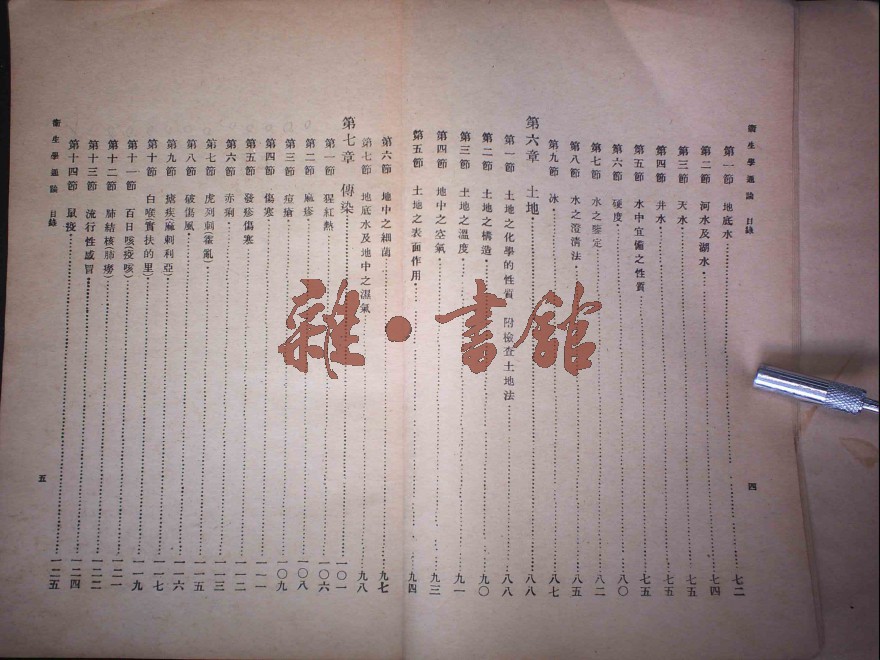 衞生學通論　目錄
四
第一節　地底水 七二
第二節　河水及湖水 七四
第三節　天水 七五
第四節　井水 七五
第五節　水中宜備之性質 七五
第六節　硬度 八〇
第七節　水之鑒定 八二
第八節　水之澄清法 八五
第九節　冰 八七
第六章　土地 八八
第一節　土地之化學的性質　附檢查土地法 八八
第二節　土地之構造 九〇
第三節　土地之溫度 九一
第四節　地中之空氣 九三
第五節　土地之表面作用 九四
第六節　地中之細菌 九七
第七節　地底水及地中之濕氣 九八
第七章　傳染 一〇一
第一節　猩紅熱 一〇六
第二節　麻疹 一〇八
第三節　痘瘡 一〇九
第四節　傷寒 一一一
第五節　發疹傷寒 一一二
第六節　赤痢 一一三
第七節　虎列刺(霍亂) 一一五
第八節　破傷風 一一六
第九節　瘧疾(麻刺利亞) 一一七
第十節　白喉(實扶的里) 一一九
第十一節　百日咳(疫咳) 一二一
第十二節　肺結核(肺癆) 一二二
第十三節　流行性感冒 一二四
第十四節　鼠疫 一二五
衞生學通論　目錄
五
雜·書館